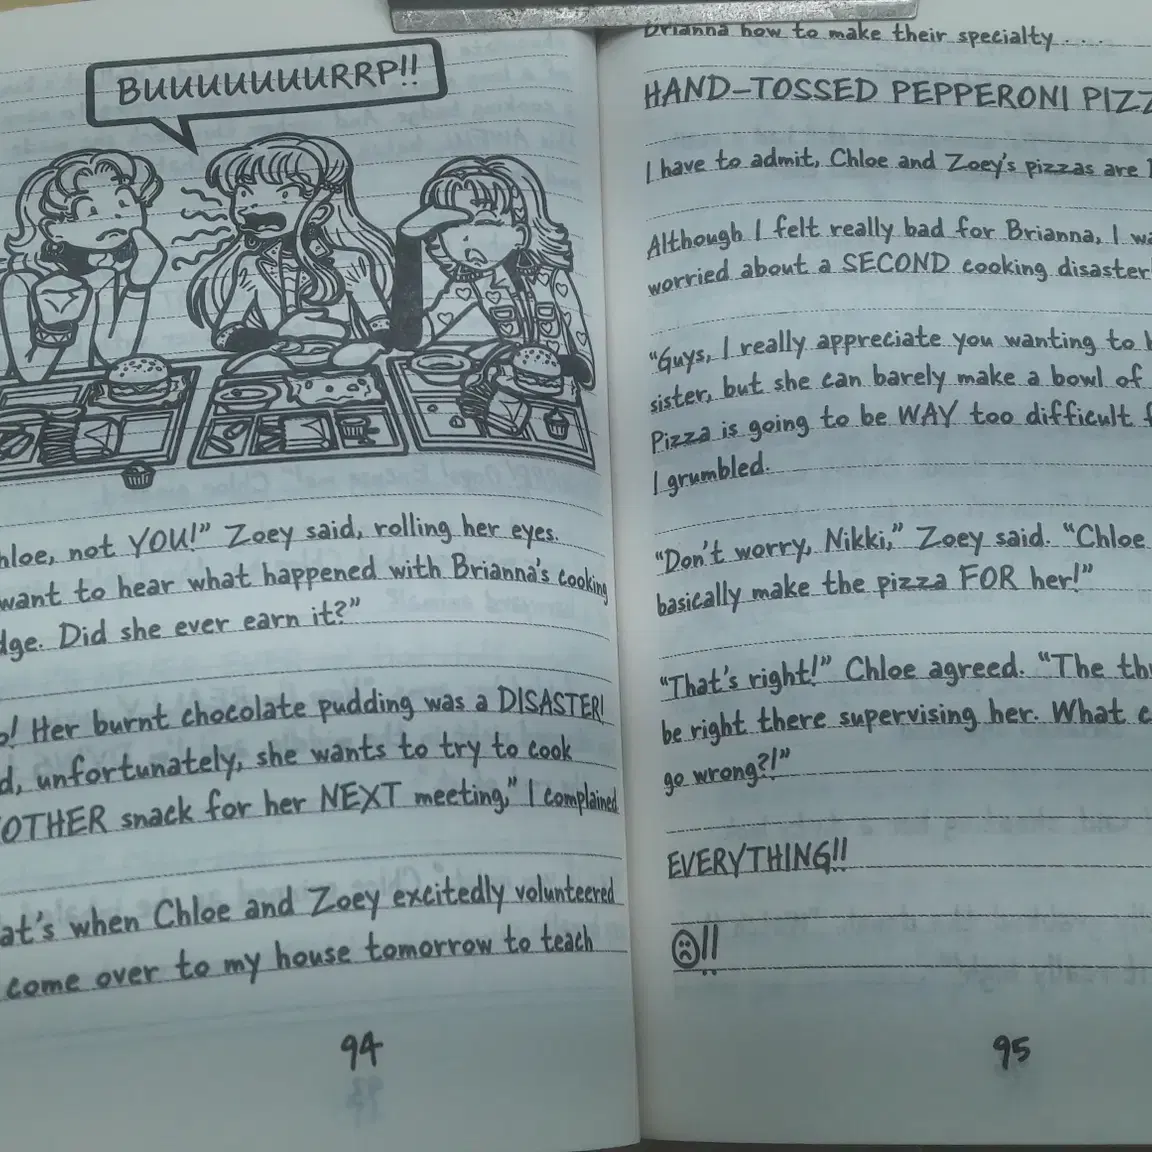 BUUUUUUUURRP!!
hloe, not YOU!” Zoey said, rolling her eyes.
want to hear what happened with Brianna's cooking
dge. Did she ever earn it?”
o! Her burnt chocolate pudding was a DISASTER!
d, unfortunately, she wants to try to cook
OTHER snack for her NEXT meeting,” I complained
at's when Chloe and Zoey excitedly volunteered
come over to my house tomorrow to teach
94
Brianna how to make their specialty . . . .
HAND-TOSSED PEPPERONI PIZZ
I have to admit, Chloe and Zoey's pizzas are
Although I felt really bad for Brianna, I wa
worried about a SECOND cooking disaster
“Guys, I really appreciate you wanting to
sister, but she can barely make a bowl of
Pizza is going to be WAY too difficult f
I grumbled.
“Don't worry, Nikki,” Zoey said. “Chloe
basically make the pizza FOR her!”
“That's right!” Chloe agreed. “The th
be right there supervising her. What c
go wrong?!”
EVERYTHING!!
☹!!
95